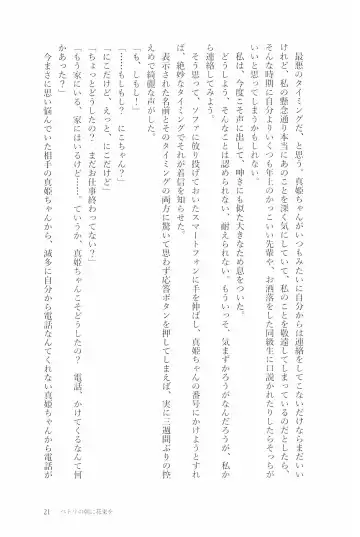 最悪のタイミングだ、と思う。真姫ちゃんがいつもみたいに自分からは連絡をしてこないだけならまだいい
けれど、私の懸念通り本当にあのことを深く気にしていて、私のことを敬遠してしまっているのだとしたら、
そんな時期に自分よりいくつも年上のかっこいい先輩や、お洒落をした同級生に口説かれたりしたらそっちが
いいと思ってしまうかもしれない。
私は、今度こそ声に出して、呻きにも似た大きなため息をついた。
どうしよう、そんなことは認められない、耐えられない。もういっそ、気まずかろうがなんだろうが、私か
ら連絡してみよう。
そう思って、ソファに放り投げておいたスマートフォンに手を伸ばし、真姫ちゃんの番号にかけようとすれ
ば、絶妙なタイミングでそれが着信を知らせた。
表示された名前とそのタイミングの両方に驚いて思わず応答ボタンを押してしまえば、実に三週間ぶりの怯
えめで綺麗な声がした。
「も、しもし!」
「……もしもし？　にこちゃん？」
「にこだけど、えっと、にこだけど」
「ちょっとどうしたの？　まだお仕事終わってない？」
「もう家にいる、家にはいるけど……。ていうか、真姫ちゃんこそどうしたの？　電話、かけてくるなんて何
かあった？」
今まさに思い悩んでいた相手の真姫ちゃんから、滅多に自分から電話なんてくれない真姫ちゃんから電話が
21　ハトリの朝に花束を